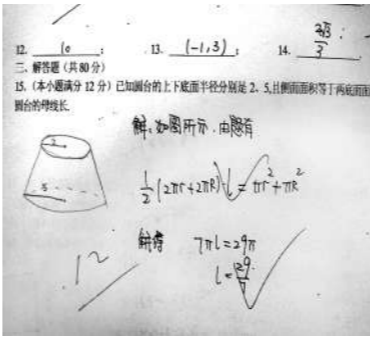 12. 10 ; 13. (-1,3) ; 14. 2√3/3 ;
二、解答题（共80分）
15.（本小题满分 12 分）已知圆台的上下底面半径分别是 2、5,且侧面面积等于两底面面
圆台的母线长.
解:如图所示.由题有
2
5
1/2(2πr+2πR)l=πr²+πR²
解得 7πl=29π
l=29/7
12